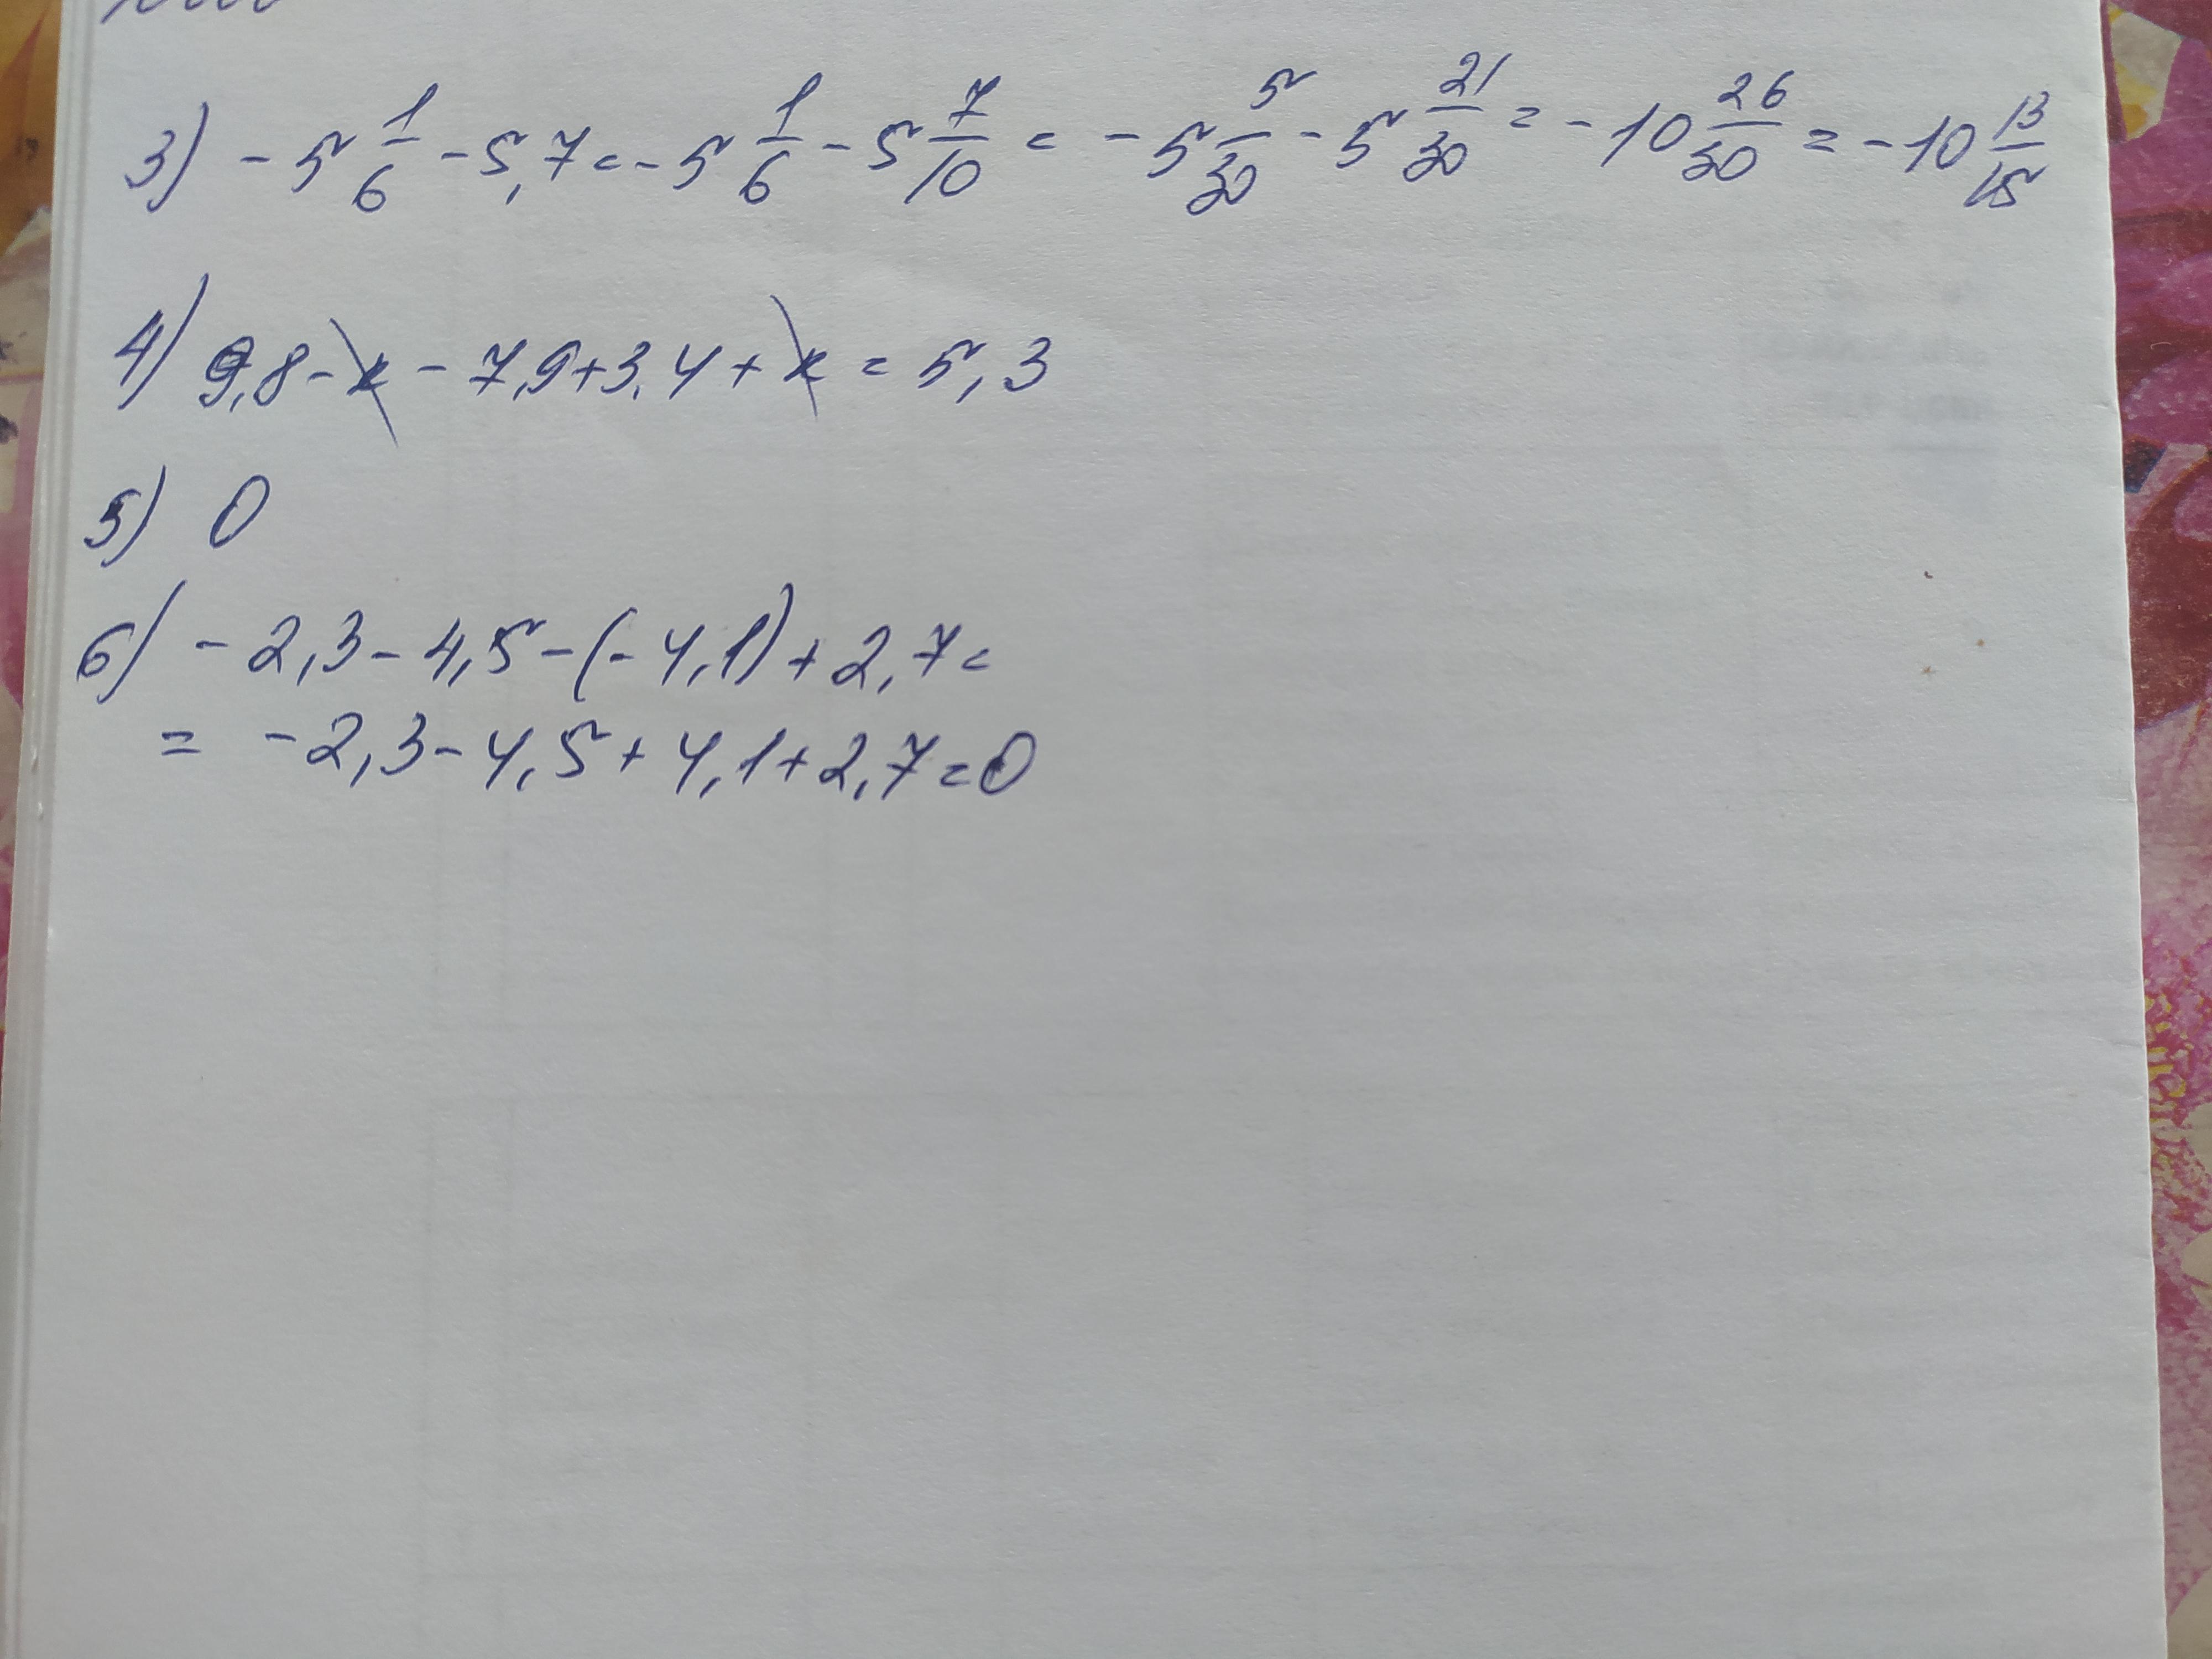 3) -5 1/6 - 5,7 = -5 1/6 - 5 7/10 = -5 5/30 - 5 21/30 = -10 26/30 = -10 13/15
4) 9,8 - x - 7,9 + 3,4 + x = 5,3
5) 0
6) -2,3 - 4,5 - (-4,1) + 2,7 =
= -2,3 - 4,5 + 4,1 + 2,7 = 0